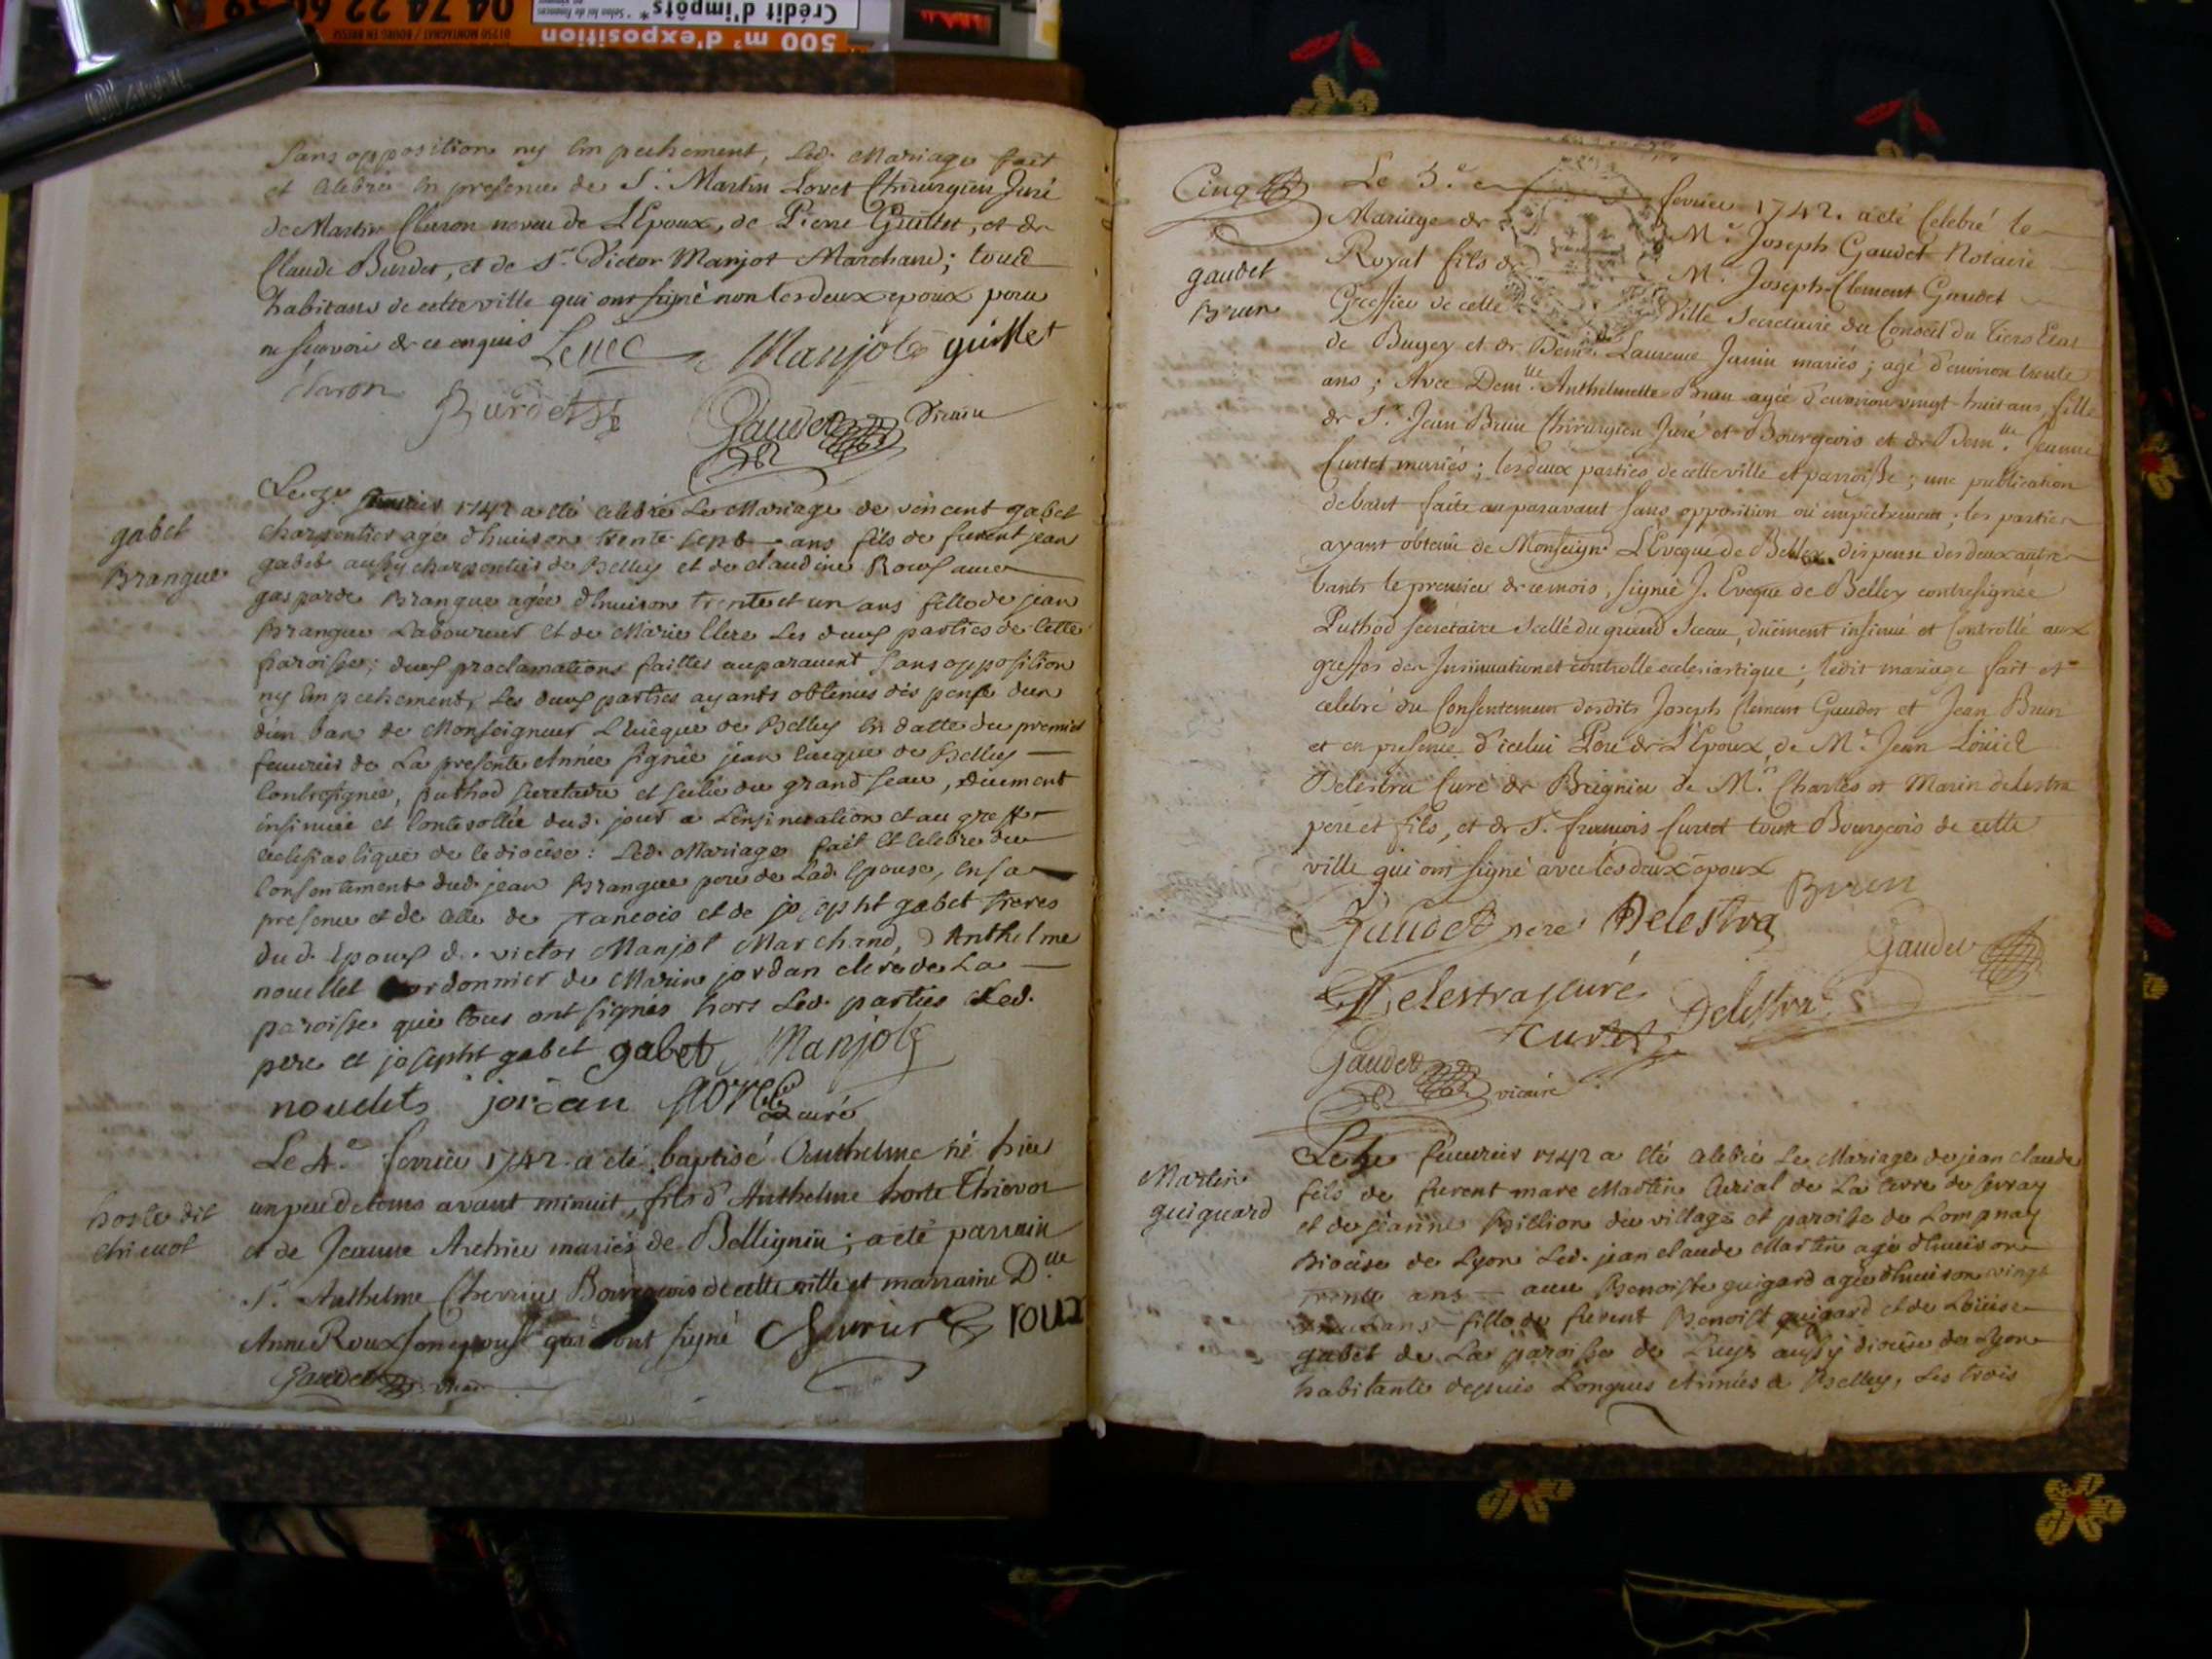 500 m² d'exposition
Crédit d'impôts*
04 74 22 60 39
01250 MONTAGNAT / BOURG EN BRESSE
sans opposition ny Empechement, Led. Mariage fait
et Celebré En presence de Sr. Martin Lovet Chirurgien Juré
de Martin Claron neveu de L'Epoux, de Pierre Guillet, et de
Claude Burdet, et de Sr. Victor Manjot Marchand; tous
habitans de cette ville qui ont signé non les deux epoux pour
ne sçavoir de ce enquis
Manjot guillet
claron
Burdet
Gaudet Vicaire
gabet
Brangue
Le 1742 a eté celebré Le Mariage de vincent gabet
charpentier agé d'huiron trente sept ans fils de furent jean
gabet aussy charpentier de Belley et de claudine Roux avec
gasparde Brangue agée d'huiron trente et un ans fille de jean
Brangue Laboureur et de Marie Clerc Les deux parties de Cette
paroisse; deux proclamations faittes auparauent sans opposition
ny Empechement, Les deux parties ayants obtenus dispense d'un
d'un ban de Monseigneur L'Euêque de Belley En datte du premier
feuurier de La presente Année signée jean Eueque de Belley
Contresignée, puthod secretaire et scellée du grand seau, duement
insinuée et Controllée dud. jour a L'insinuation et au greffe
Eclesiastique de ce diocèse: Led. Mariage fait et Celebré du
Consentement dud. jean Brangue pere de Lad. Epouse, En sa
presence et de Celle de francois et de josepht gabet freres
dud. Epoux de victor Manjot Marchand, d'Anthelme
nouellet cordonnier de Marin jordan clerc de La
paroisse qui tous ont signés hors Led. parties Led.
pere et josepht gabet gabet Manjot
jordan curé
hoste dit
thieuot
Le 4.e fevrier 1742 a eté baptisé Anthelme né hier
un peu de tems avant minuit, fils d'Anthelme hoste thievot
et de Jeanne mariés de Bellignin; a eté parrain
Sr. Anthelme Bourgeois de cette ville et marraine D.lle
Anne Roux son epouse qui ont signé roux
Gaudet vicaire
Cinq
gaudet
Brun
Le 5.e fevrier 1742. a eté Celebré le
Mariage de M.e Joseph Gaudet Notaire
Royal fils de M.e Joseph-Clement Gaudet
Greffier de cette Ville Secretaire du Conseil du tiers Etat
de Bugey et de Dem.lle Laurence Janin mariés; agé d'environ trente
ans; Avec Dem.lle Anthelmette Brun agée d'environ vingt-huit ans, fille
de Sr. Jean Brun Chirurgien Juré et Bourgeois et de Dem.lle Jeanne
Curtet mariés; les deux parties de cette ville et parroisse; une publication
de bant faite auparavant sans opposition ou empêchement; les parties
ayant obtenu de Monseign.r L'Eveque de Belley dispense des deux autres
bants le premier de ce mois, signée J. Eveque de Belley contresignée
Puthod secretaire Scellé du grand Sceau, duëment insinué et Controllé aux
greffes des Insinuation et controlle eclesiastique; ledit mariage fait et
celebré du Consentement desdits Joseph Clement Gaudet et Jean Brun
et en presence d'icelui Pere de L'Epoux, de M.e Jean Loüis
Delestra Curé de Bregnier de M.e Charles et Marin delestra
pere et fils, et de Sr. francois Curtet tous Bourgeois de cette
ville qui ont signé avec les deux epoux Brun
Gaudet pere Delestra
Gaudet
Delestra curé Delestra
Curtet
Gaudet vicaire
Martin
guiguard
feuurier 1742 a eté celebré Le Mariage de jean claude
fils de furent marc Martin de La terre de
et de jeanne Billion du village et paroisse de Lompnay
Diocèse de Lyon Led. jean claude Martin agé d'huiron
trente ans avec Benoiste guigard agée d'huiron vingt
ans fille de furent Benoist guigard et de Loüise
gabet de La paroisse de aussy diocèse de Lyon
habitante depuis Longues Années a Belley, Les trois